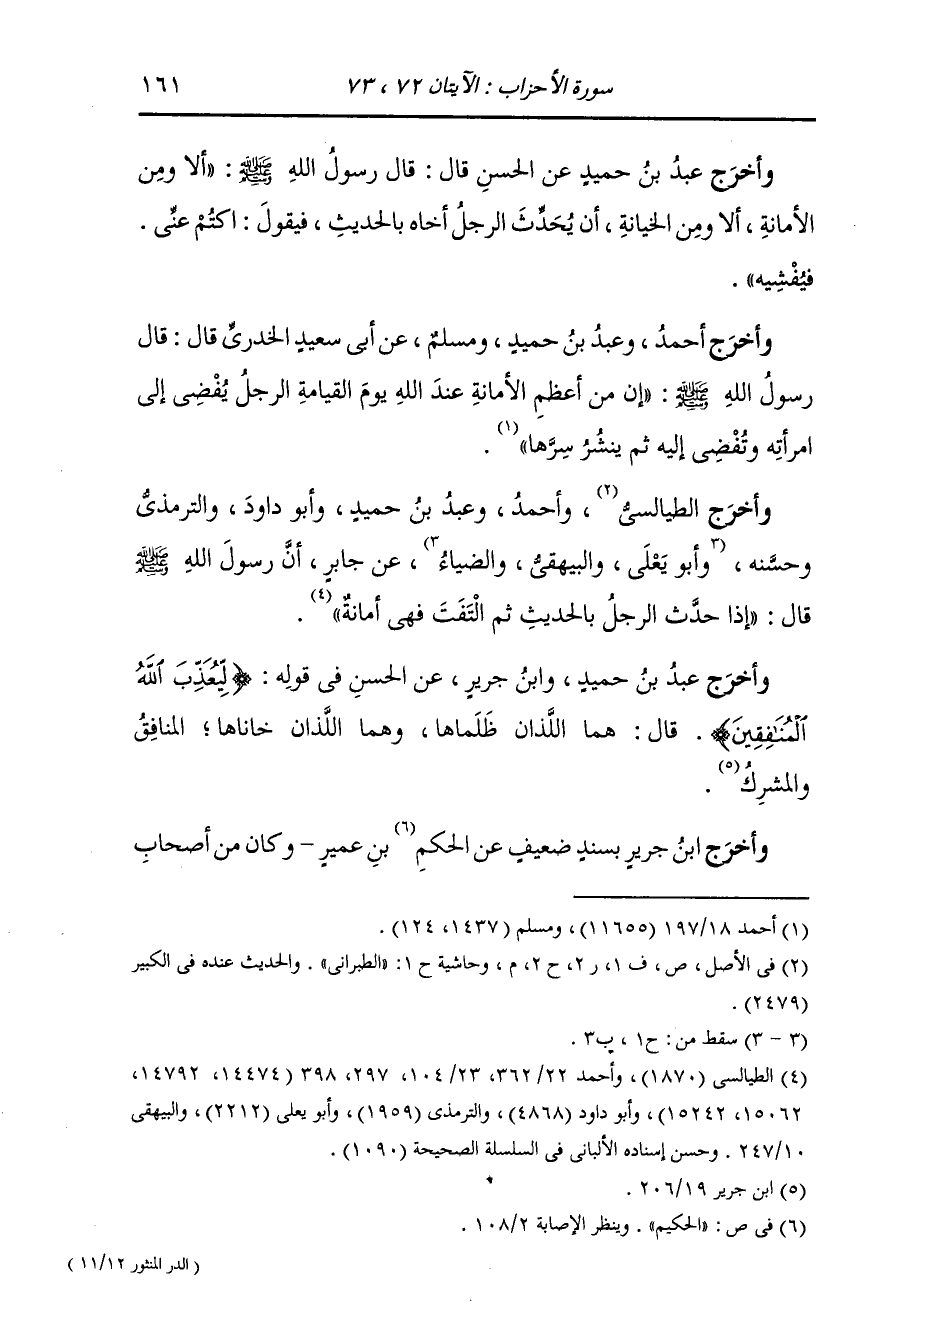 سورة الأحزاب : الآيتان ٧٢ ، ٧٣ ١٦١
وأخرَج عبدُ بنُ حميدٍ عن الحسنِ قال : قال رسولُ اللهِ ﷺ : «ألا ومِن
الأمانةِ ، ألا ومِن الخيانةِ ، أن يُحَدِّثَ الرجلُ أخاه بالحديثِ ، فيقولَ : اكتُمْ عنِّى .
فيُفْشِيه» .
وأخرَج أحمدُ ، وعبدُ بنُ حميدٍ ، ومسلمٌ ، عن أبى سعيدٍ الخدرىِّ قال : قال
رسولُ اللهِ ﷺ : «إن من أعظمِ الأمانةِ عندَ اللهِ يومَ القيامةِ الرجلُ يُفْضِى إلى
امرأتِه وتُفْضِى إليه ثم ينشُرُ سِرَّها»(١) .
وأخرَج الطيالسىُّ(٢) ، وأحمدُ ، وعبدُ بنُ حميدٍ ، وأبو داودَ ، والترمذىُّ
وحسَّنه ، (٣وأبو يَعْلَى ، والبيهقىُّ ، والضياءُ٣) ، عن جابرٍ ، أنَّ رسولَ اللهِ ﷺ
قال : «إذا حدَّث الرجلُ بالحديثِ ثم الْتَفَتَ فهى أمانةٌ»(٤) .
وأخرَج عبدُ بنُ حميدٍ ، وابنُ جريرٍ ، عن الحسنِ فى قولِه : ﴿لِّيُعَذِّبَ ٱللَّهُ
ٱلْمُنَٰفِقِينَ﴾ . قال : هما اللَّذان ظَلَماها ، وهما اللَّذان خاناها ؛ المنافِقُ
والمشرِكُ(٥) .
وأخرَج ابنُ جريرٍ بسندٍ ضعيفٍ عن الحكمِ(٦) بنِ عميرٍ – وكان من أصحابِ
(١) أحمد ١٩٧/١٨ (١١٦٥٥) ، ومسلم (١٤٣٧، ١٢٤) .
(٢) فى الأصل ، ص ، ف ١، ر ٢، ح ٢، م ، وحاشية ح ١: «الطبرانى» . والحديث عنده فى الكبير
(٢٤٧٩) .
(٣ – ٣) سقط من : ح١ ، ب٣ .
(٤) الطيالسى (١٨٧٠) ، وأحمد ٣٦٢/٢٢، ١٠٤/٢٣، ٢٩٧، ٣٩٨ (١٤٤٧٤، ١٤٧٩٢،
١٥٠٦٢، ١٥٢٤٢) ، وأبو داود (٤٨٦٨) ، والترمذى (١٩٥٩) ، وأبو يعلى (٢٢١٢) ، والبيهقى
٢٤٧/١٠ . وحسن إسناده الألبانى فى السلسلة الصحيحة (١٠٩٠) .
(٥) ابن جرير ٢٠٦/١٩ .
(٦) فى ص : «الحكيم» . وينظر الإصابة ١٠٨/٢ .
( الدر المنثور ١١/١٢ )